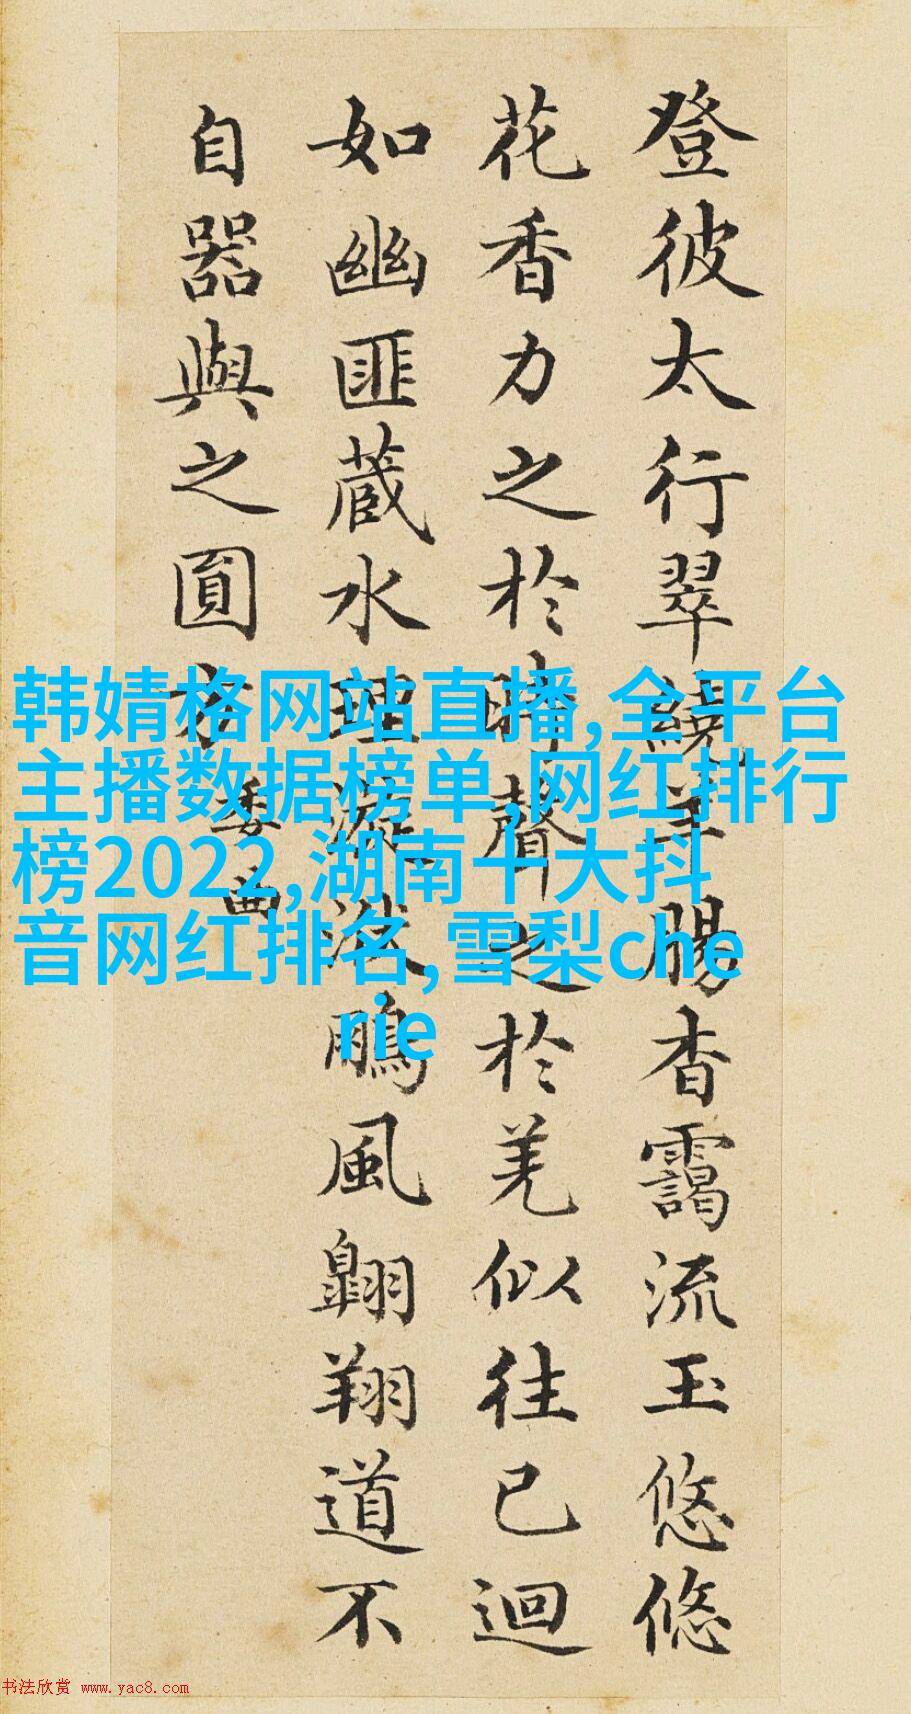 登彼太行翠繞羊腸杳靄流玉悠悠
花香力之於時聲之於羌似往已迴
如幽匪蔵水理漩洑鵬風翺翔道不
自器與之圓方
委曲
韩婧格网站直播,全平台
主播数据榜单,网红排行
榜2022,湖南十大抖
音网红排名,雪梨che
rie
书法欣赏 www.yac8.com